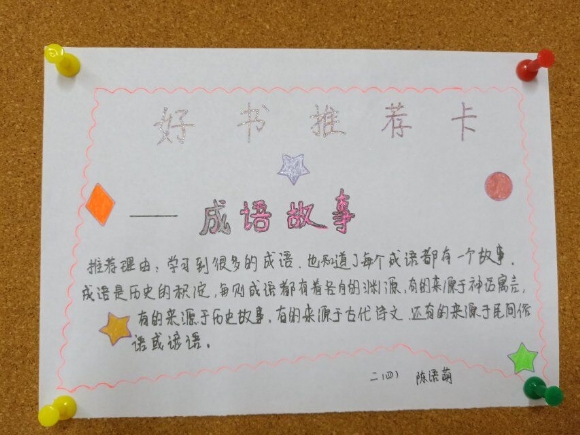 好书推荐卡
——成语故事
推荐理由：学习到很多的成语，也知道了每个成语都有一个故事，
成语是历史的积淀，每则成语都有着各自的渊源，有的来源于神话寓言，
有的来源于历史故事，有的来源于古代诗文，还有的来源于民间俗
语或谚语。
二（四） 陈语萌